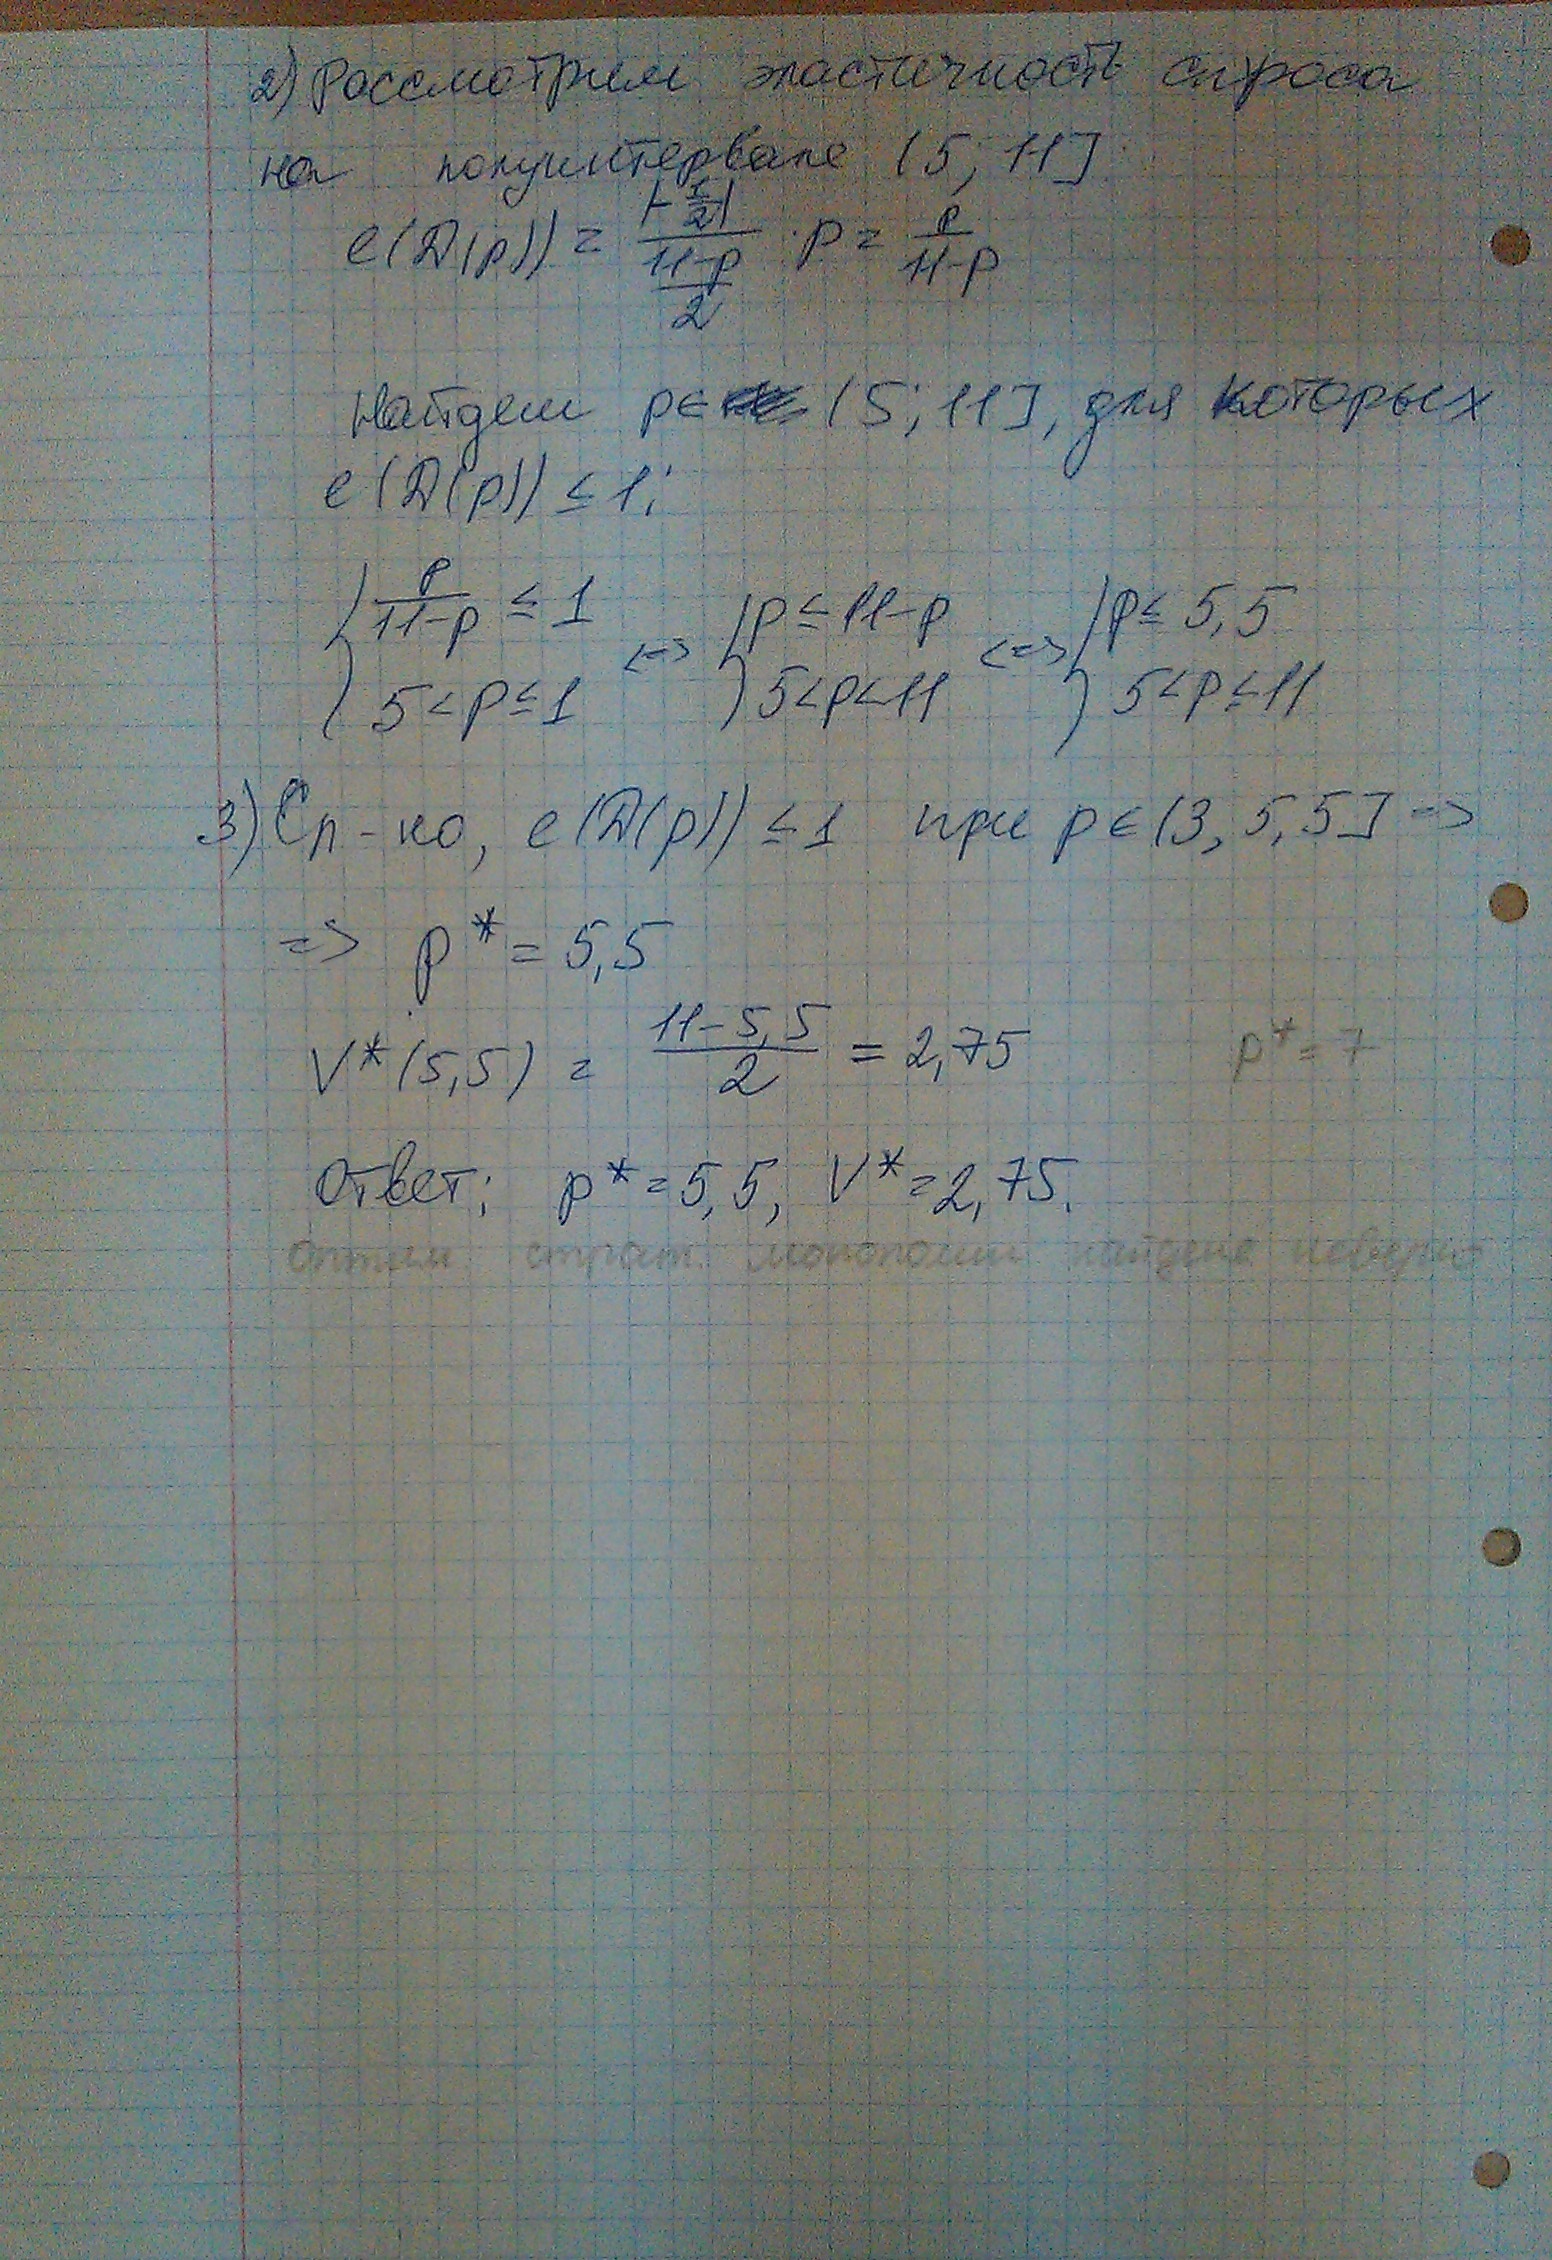 2) Рассмотрим эластичность спроса
на полуинтервале (5; 11]
e(D(p)) = |-1/2| / ((11-p)/2) · p = p/(11-p)
Найдем p∈ (5; 11], для которых
e(D(p)) ≤ 1:
{ p/(11-p) ≤ 1 <=> { p ≤ 11-p <=> { p ≤ 5,5
5 < p ≤ 1 5 < p < 11 5 < p ≤ 11
3) Сл-но, e(D(p)) ≤ 1 при p∈(3, 5,5] =>
=> p* = 5,5
V*(5,5) = (11-5,5)/2 = 2,75 p* = 7
Ответ: p* = 5,5, V* = 2,75.
оптим. страт. монополии найдена неверно